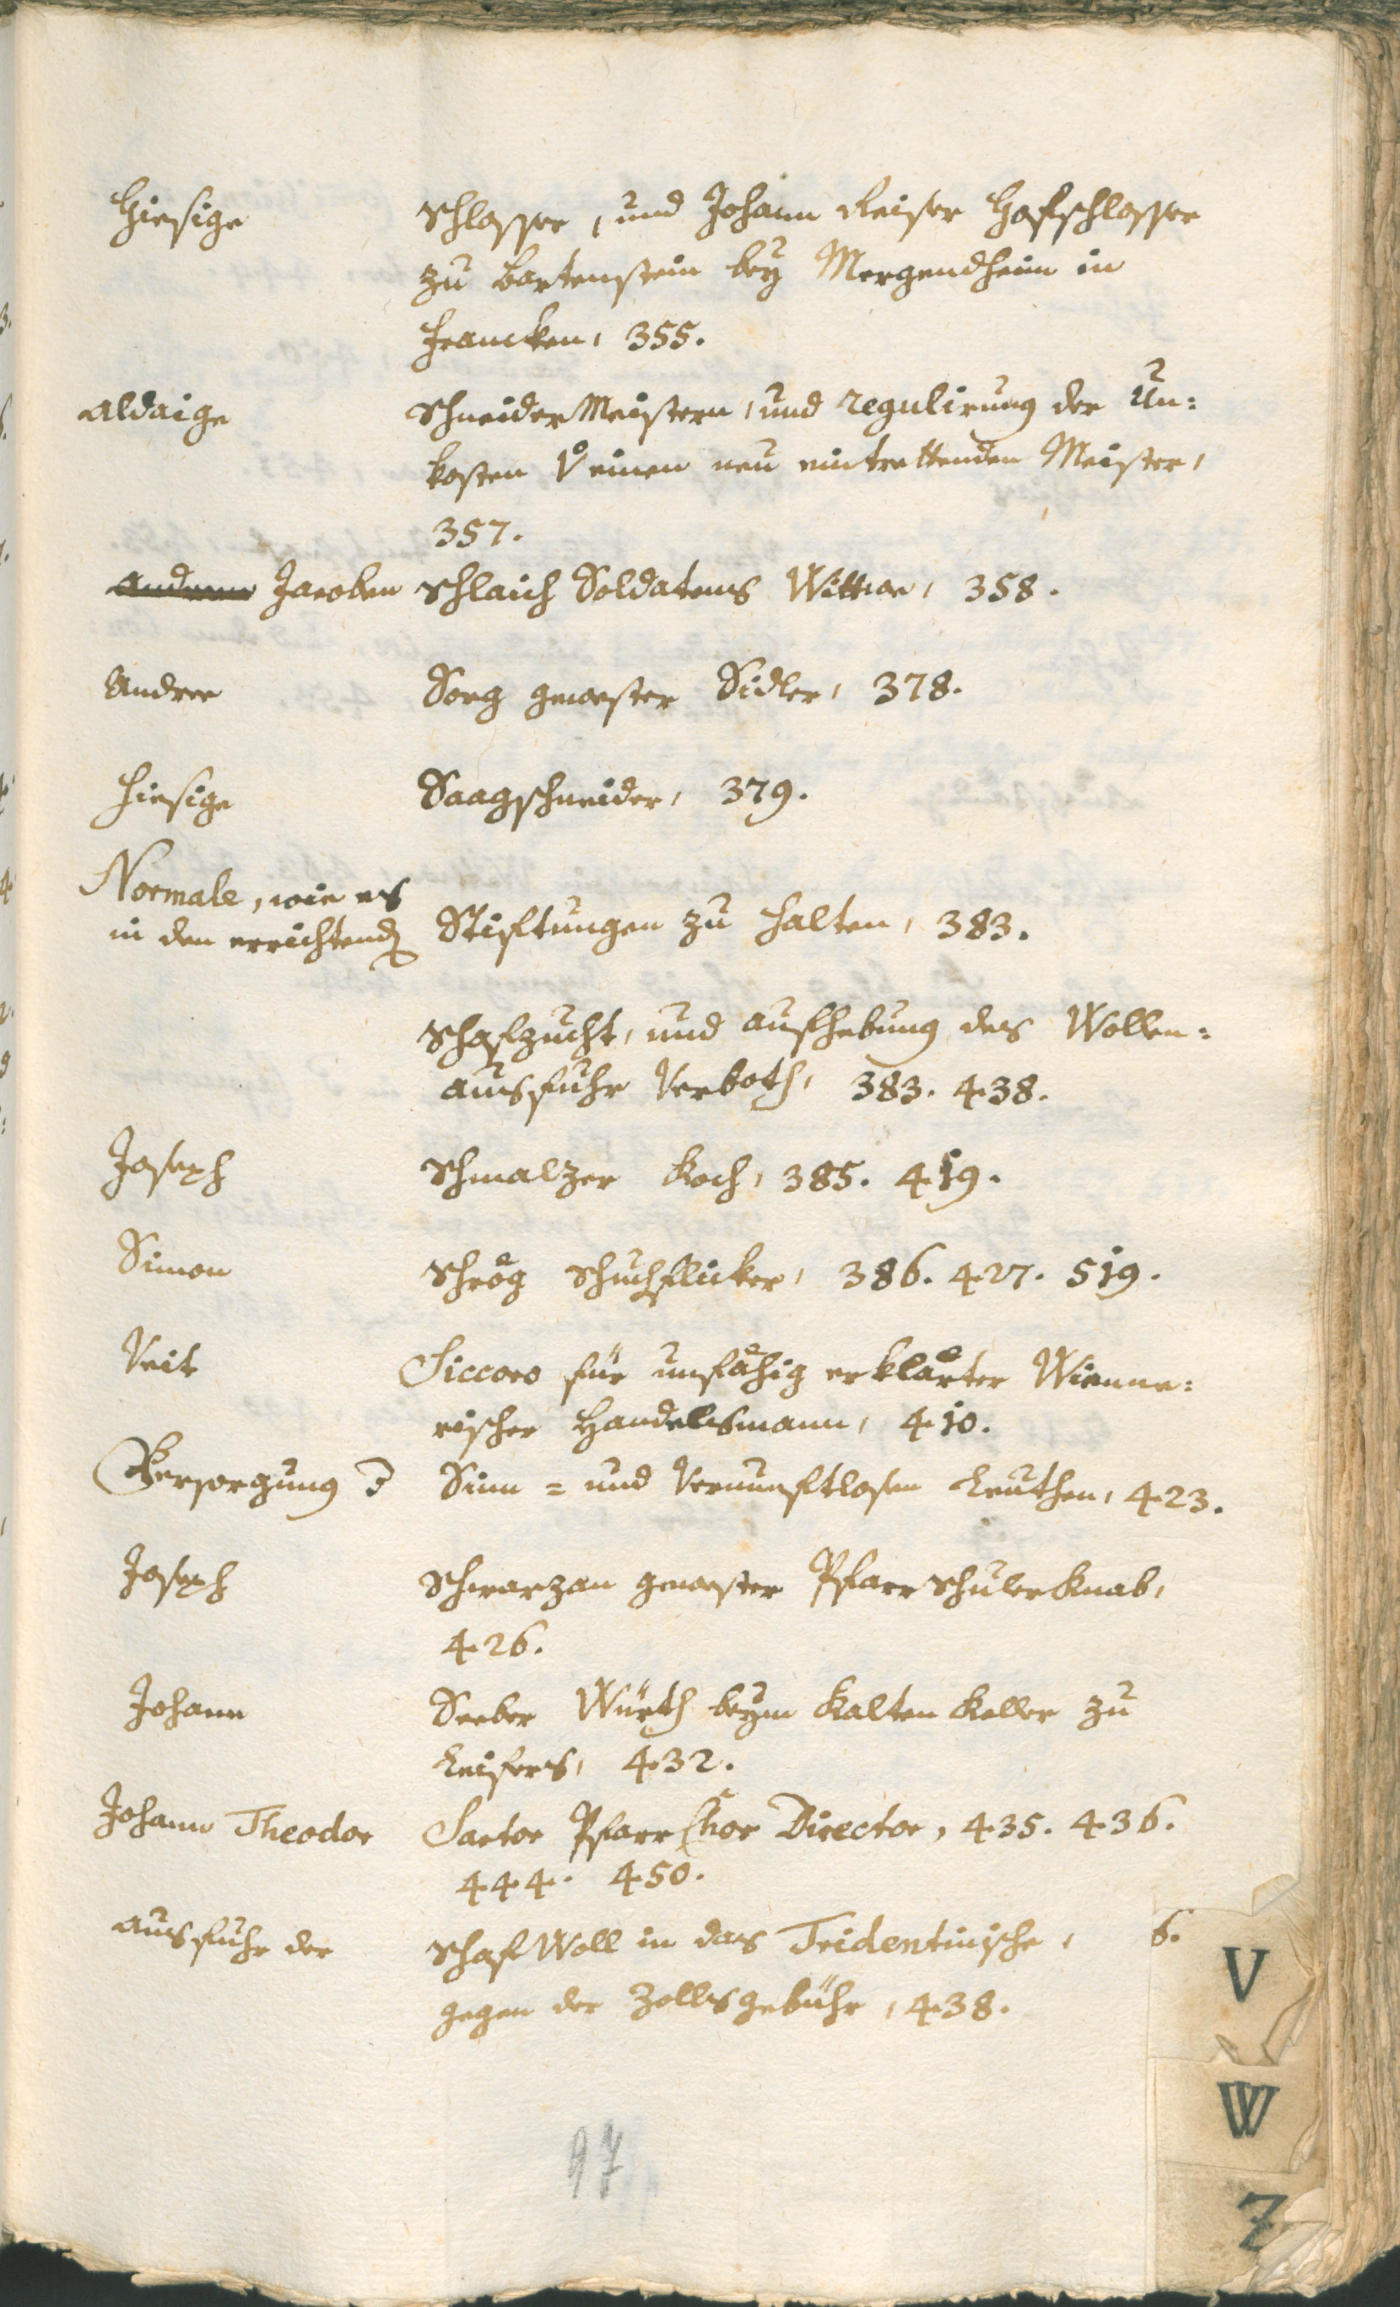 Hiesige Schlosser, und Johann Reiser Hofschlosser
zu Bartenstein bey Mergendheim in
Francken, 355.
Aldaige Schneider Meistern, und regulirung der Un:
kosten einen neu eintrettenden Meister,
357.
Jacoben Schlaich Soldatens Wittwe, 358.
Andree Sorg gewester Sidler, 378.
Hiesige Saagschneider, 379.
Normale, wie es
in den errichtend Stiftungen zu halten, 383.
Schafzucht, und aufhebung des Wollen:
ausfuhr Verboth, 383. 438.
Joseph Schmalzer Koch, 385. 419.
Simon Schrög Schuchflicker, 386. 427. 519.
Veit Siccoro für unfähig erklärter Wienne:
rischer Handelsmann, 410.
Versorgung d Sinn = und Vernunftlosen Leuthen, 423.
Joseph Schwarzan gewester Pfarrschulerknab,
426.
Johann Seeber Würth beym Kalten Keller zu
Leifers, 432.
Johann Theodor Sartor Pfarr Chor Director, 435. 436.
444. 450.
Ausfuhr der Schaf Woll in das Tridentinische,
gegen der Zollsgebühr, 438.
6.
V
W
Z
97